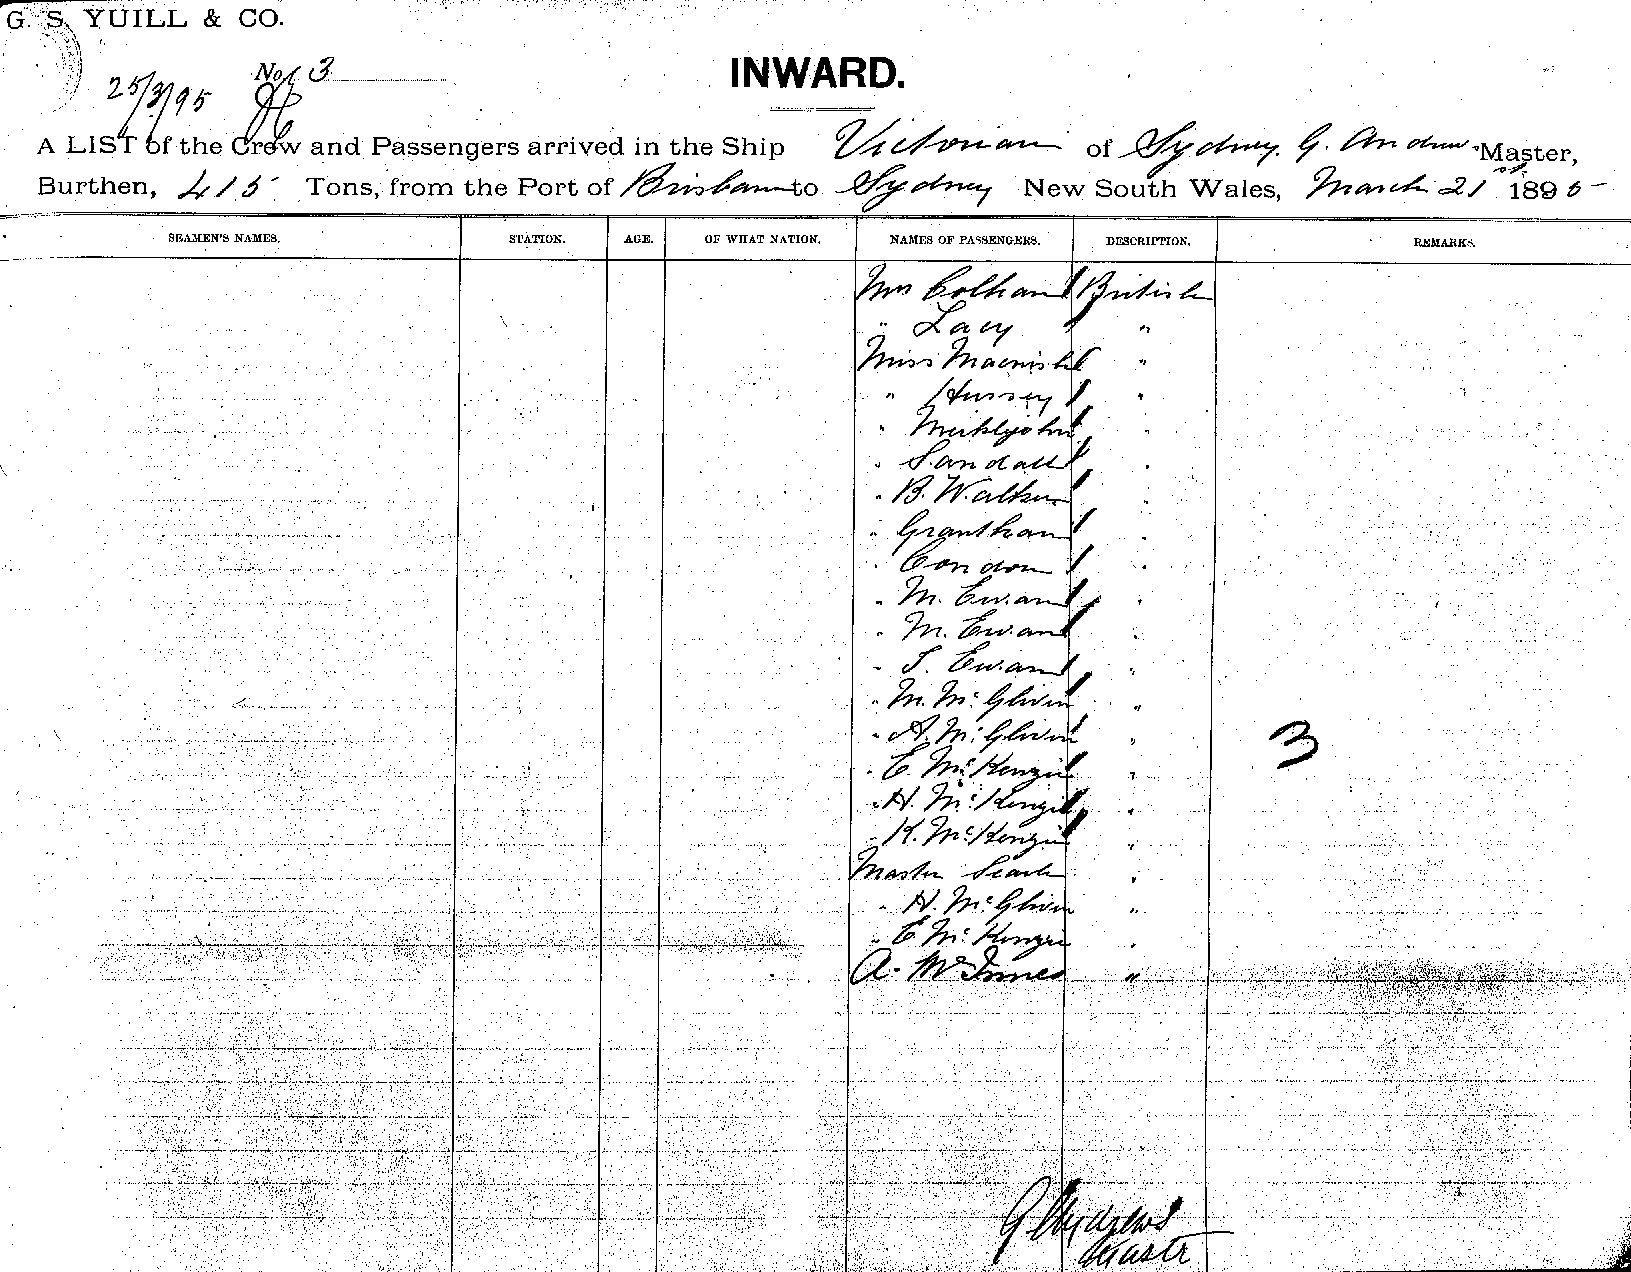 G. S. YUILL & CO.
25/3/95 No. 3
INWARD.
A LIST of the Crew and Passengers arrived in the Ship Victorian of Sydney. G. Andrews Master,
Burthen, 415 Tons, from the Port of Brisbane to Sydney New South Wales, March 21st 1895
SEAMEN'S NAMES. STATION. AGE. OF WHAT NATION. NAMES OF PASSENGERS. DESCRIPTION. REMARKS.
Mrs British
" Lacy "
Miss Macnish "
" Hussey "
" Meiklejohn "
" Sandall "
" B. Walker "
" Grantham "
" Condon "
" M. Ewan "
" M. Ewan "
" Ewan "
" M. McGlivin "
" A. McGlivin "
" E. McKenzie "
3
" H. McKenzie "
" K. McKenzie "
Master Searle "
" H. McGlivin "
" E. McKenzie "
A. McInnes "
G Andrews
Master